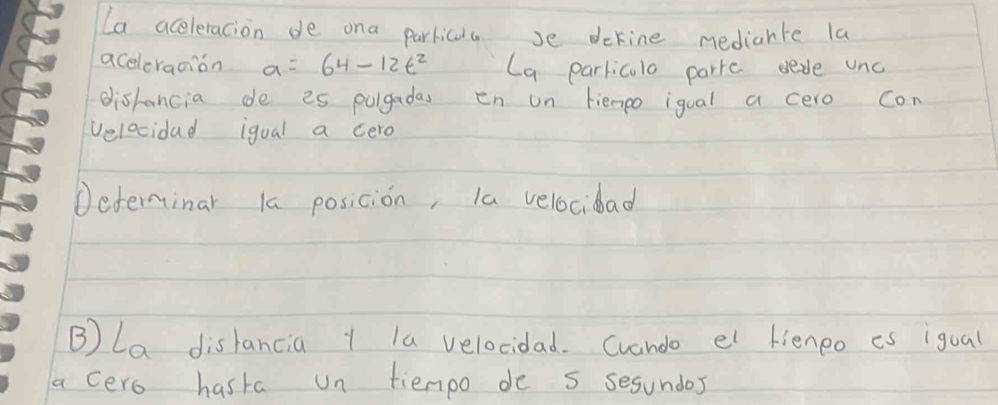 La aceleración de una particula se define mediante la
aceleración a = 64 - 12t²   La particula parte desde una
distancia de 25 pulgadas en un tiempo igual a cero con
velocidad igual a cero
Determinar la posición, la velocidad
B) La distancia y la velocidad. Cuando el tiempo es igual
a cero hasta un tiempo de 5 segundos